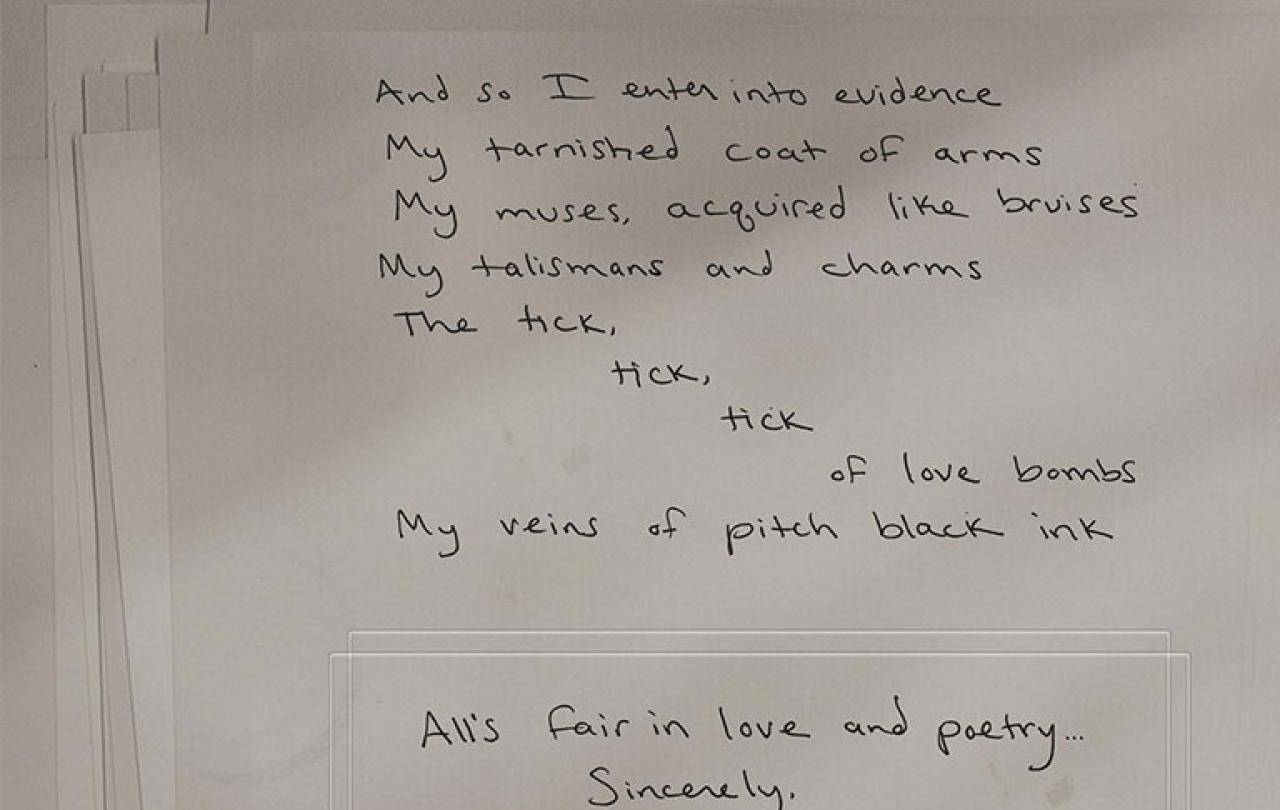 And so I enter into evidence
My tarnished coat of arms
My muses, acquired like bruises
My talismans and charms
The tick,
tick,
tick
of love bombs
My veins of pitch black ink
All's fair in love and poetry...
Sincerely,